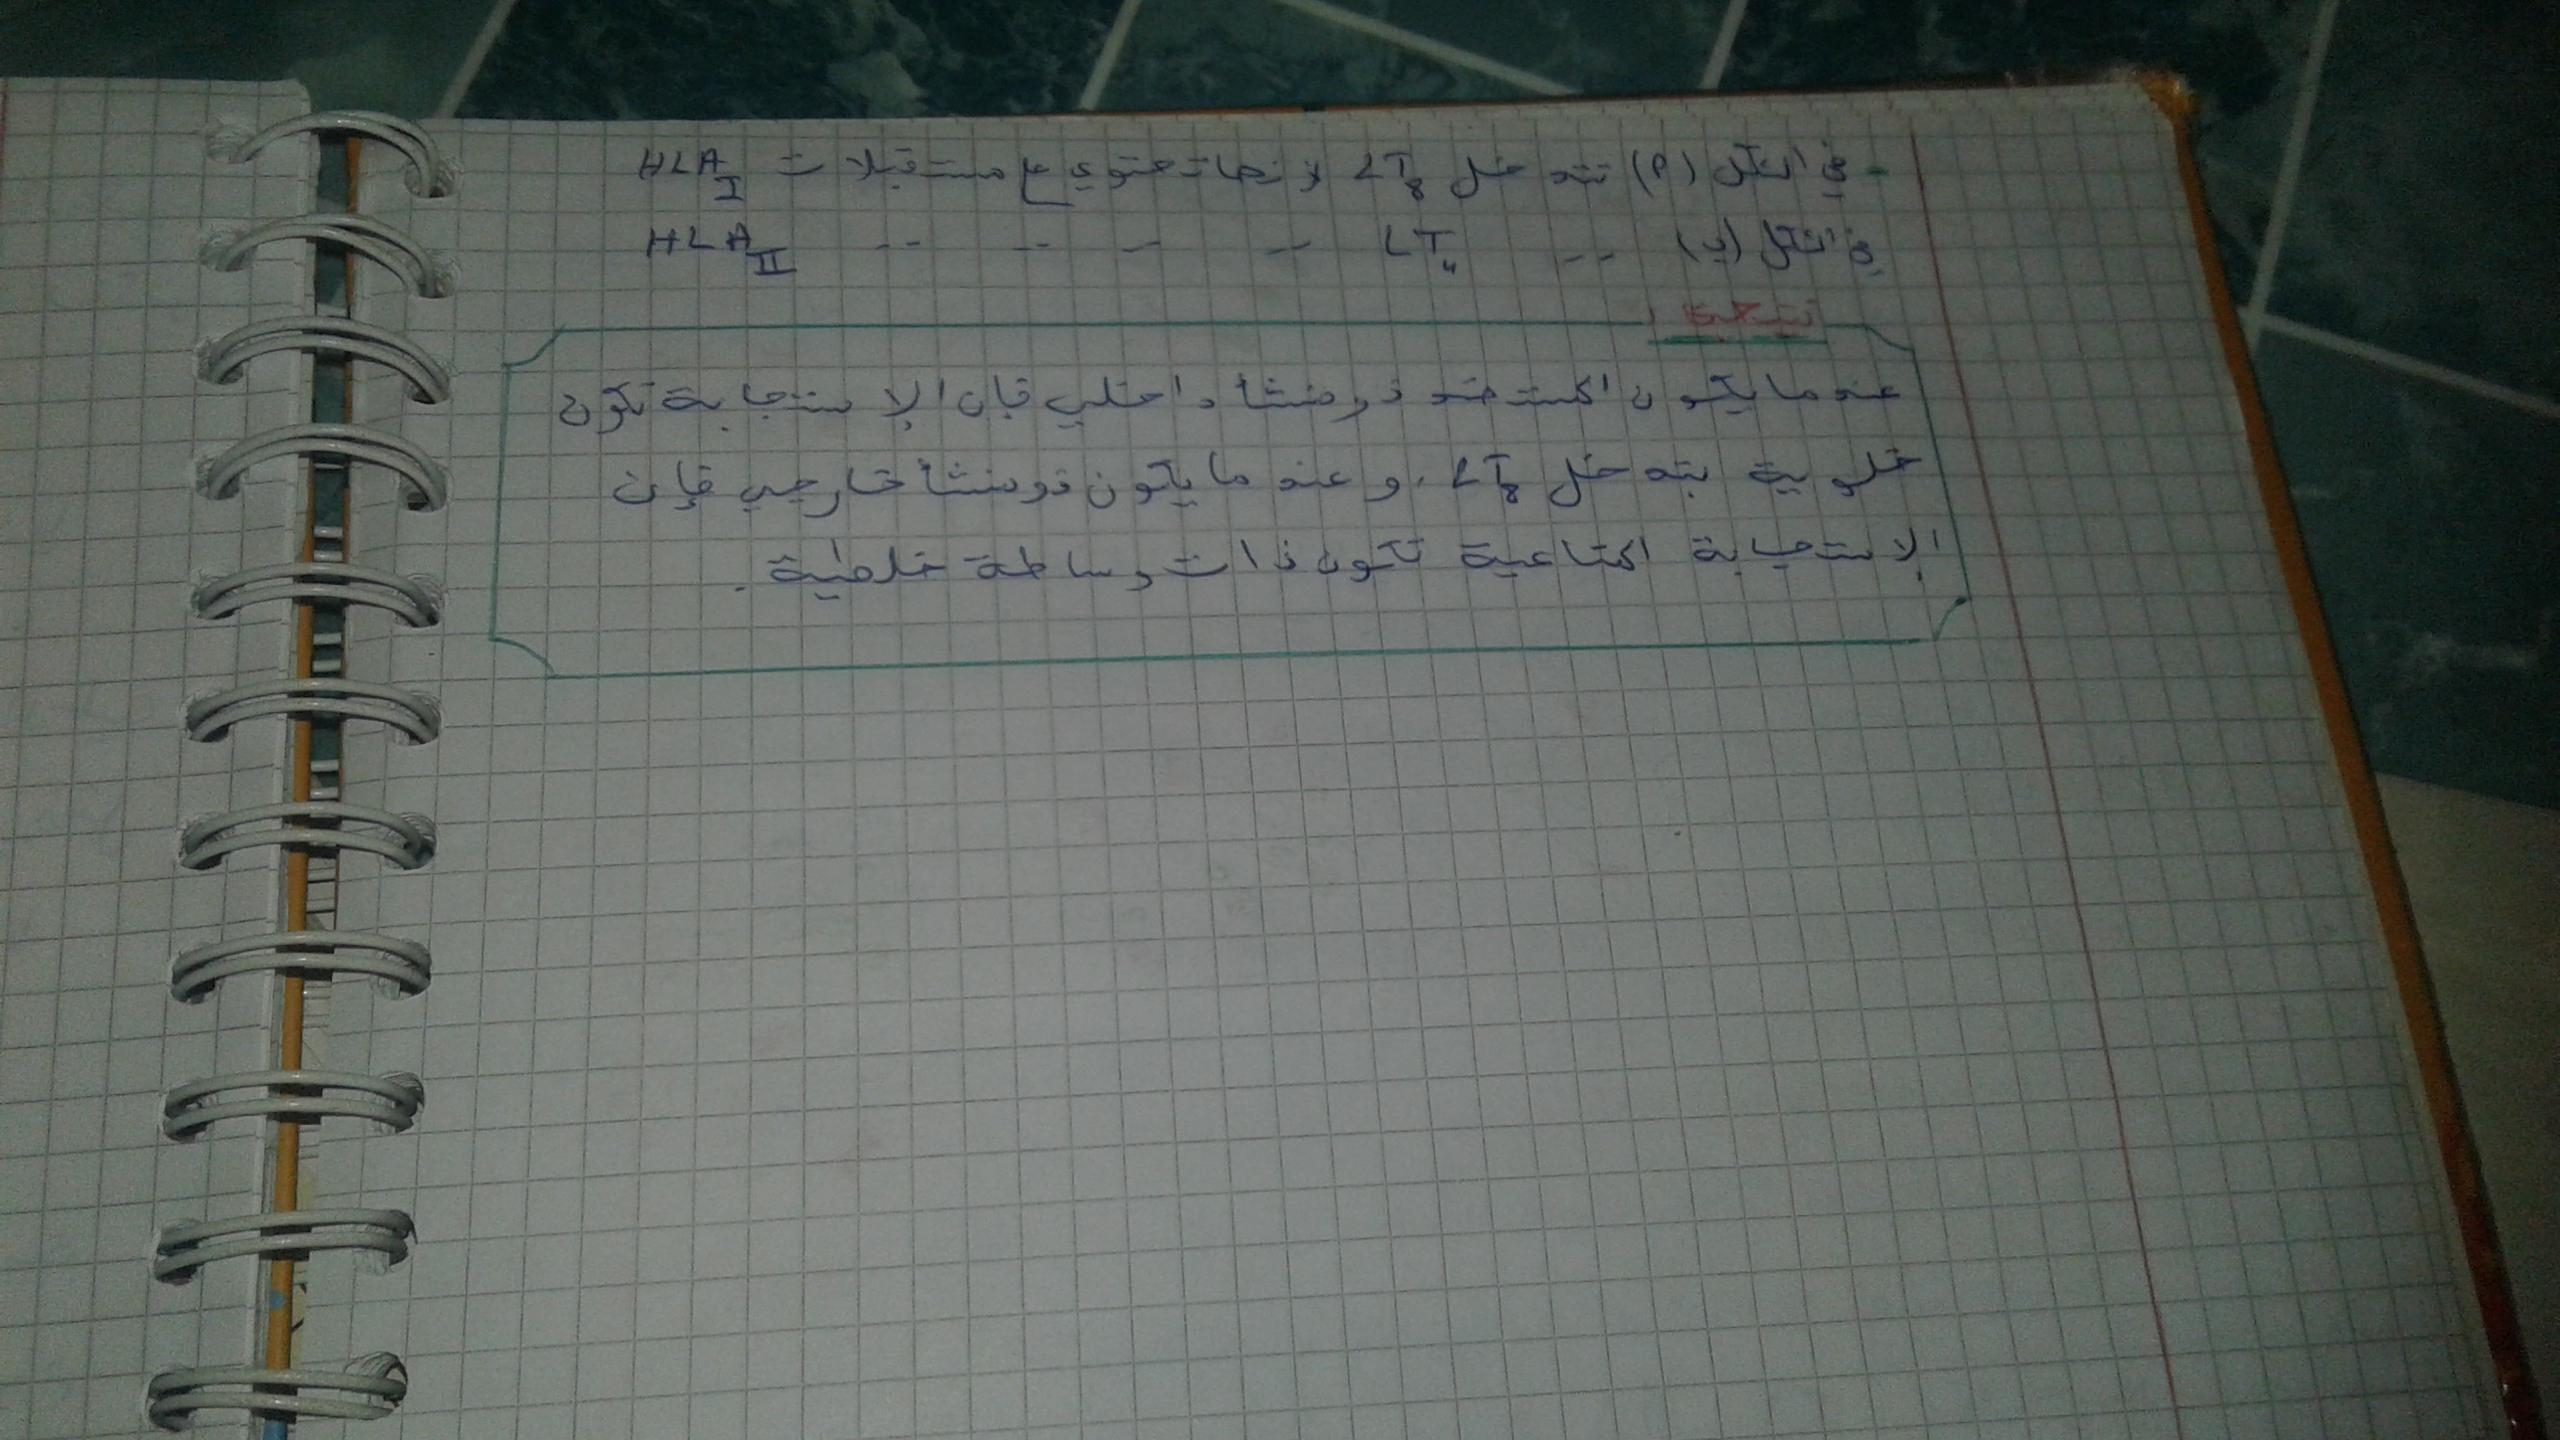 - في الشكل (أ) تتدخل LT8 لأنها تحتوي على مستقبلات HLA I
في الشكل (ب) -- LT4 -- -- -- -- HLA II
نتيجة:
عندما يكون المستضد ذو منشأ داخلي فإن الإستجابة تكون
خلوية بتدخل LT8، وعندما يكون ذو منشأ خارجي فإن
الإستجابة المناعية تكون ذات وساطة خلطية.